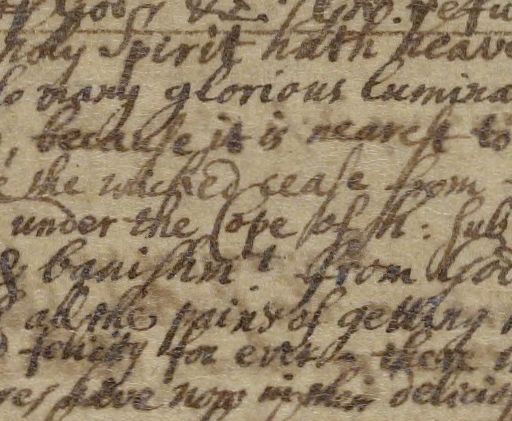 of God, &c.
holy Spirit hath heave
so many glorious lumina
, because it is nearest to
e the wicked cease from
under the Cope of h: subj
& banishmt from God
all the pains of getting
felicity for ever
res have now in their delicio